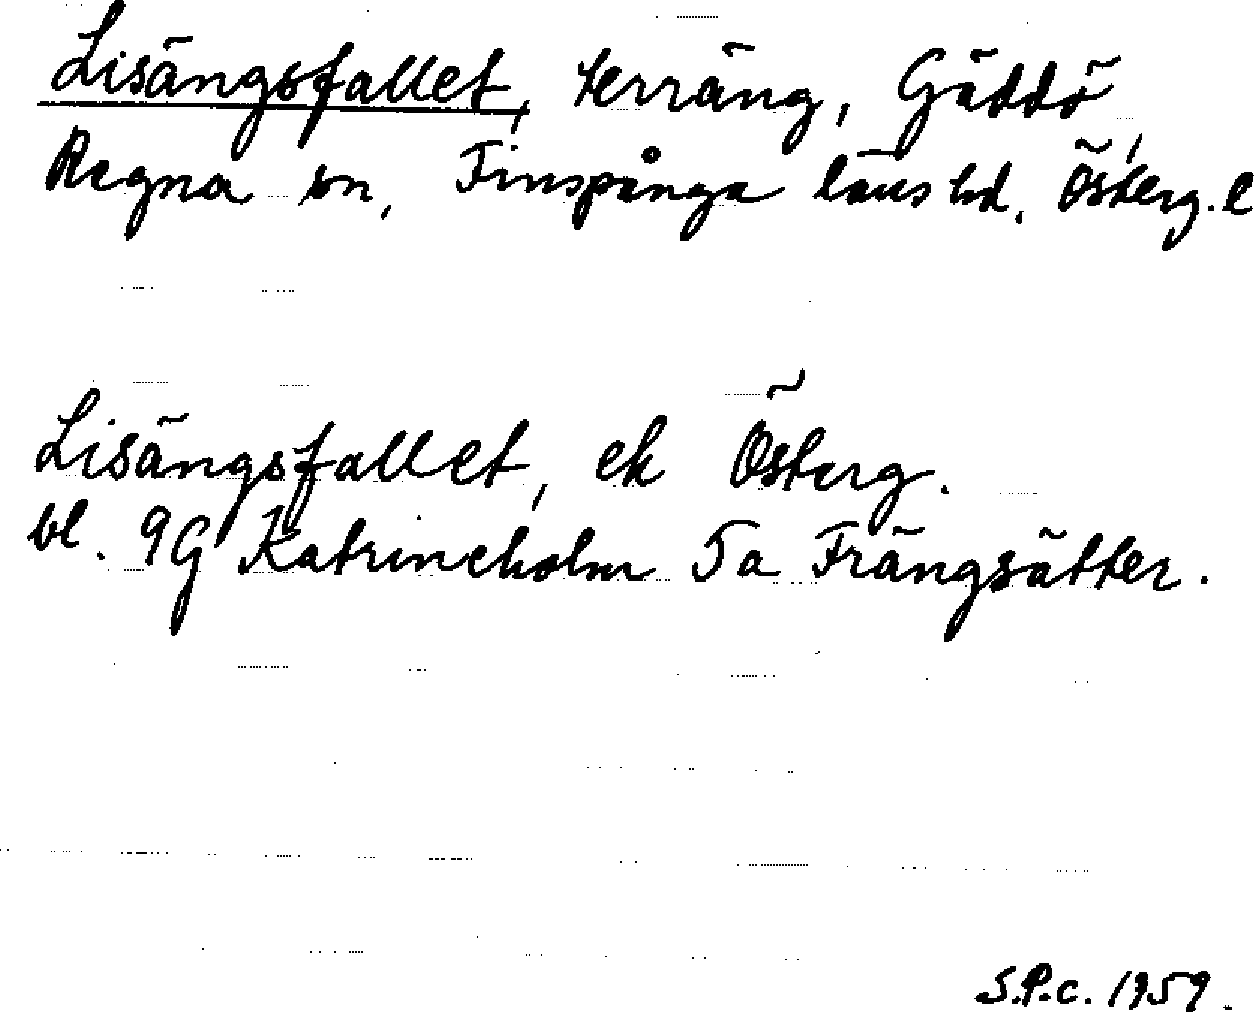 Lisängsfallet, terräng, Gäddö,
Regna sn, Finspånga läns hd. Österg. l
Lisängsfallet, ek Österg.
bl. 9G Katrineholm 5a Frängsätter.
S.P.c. 1959.